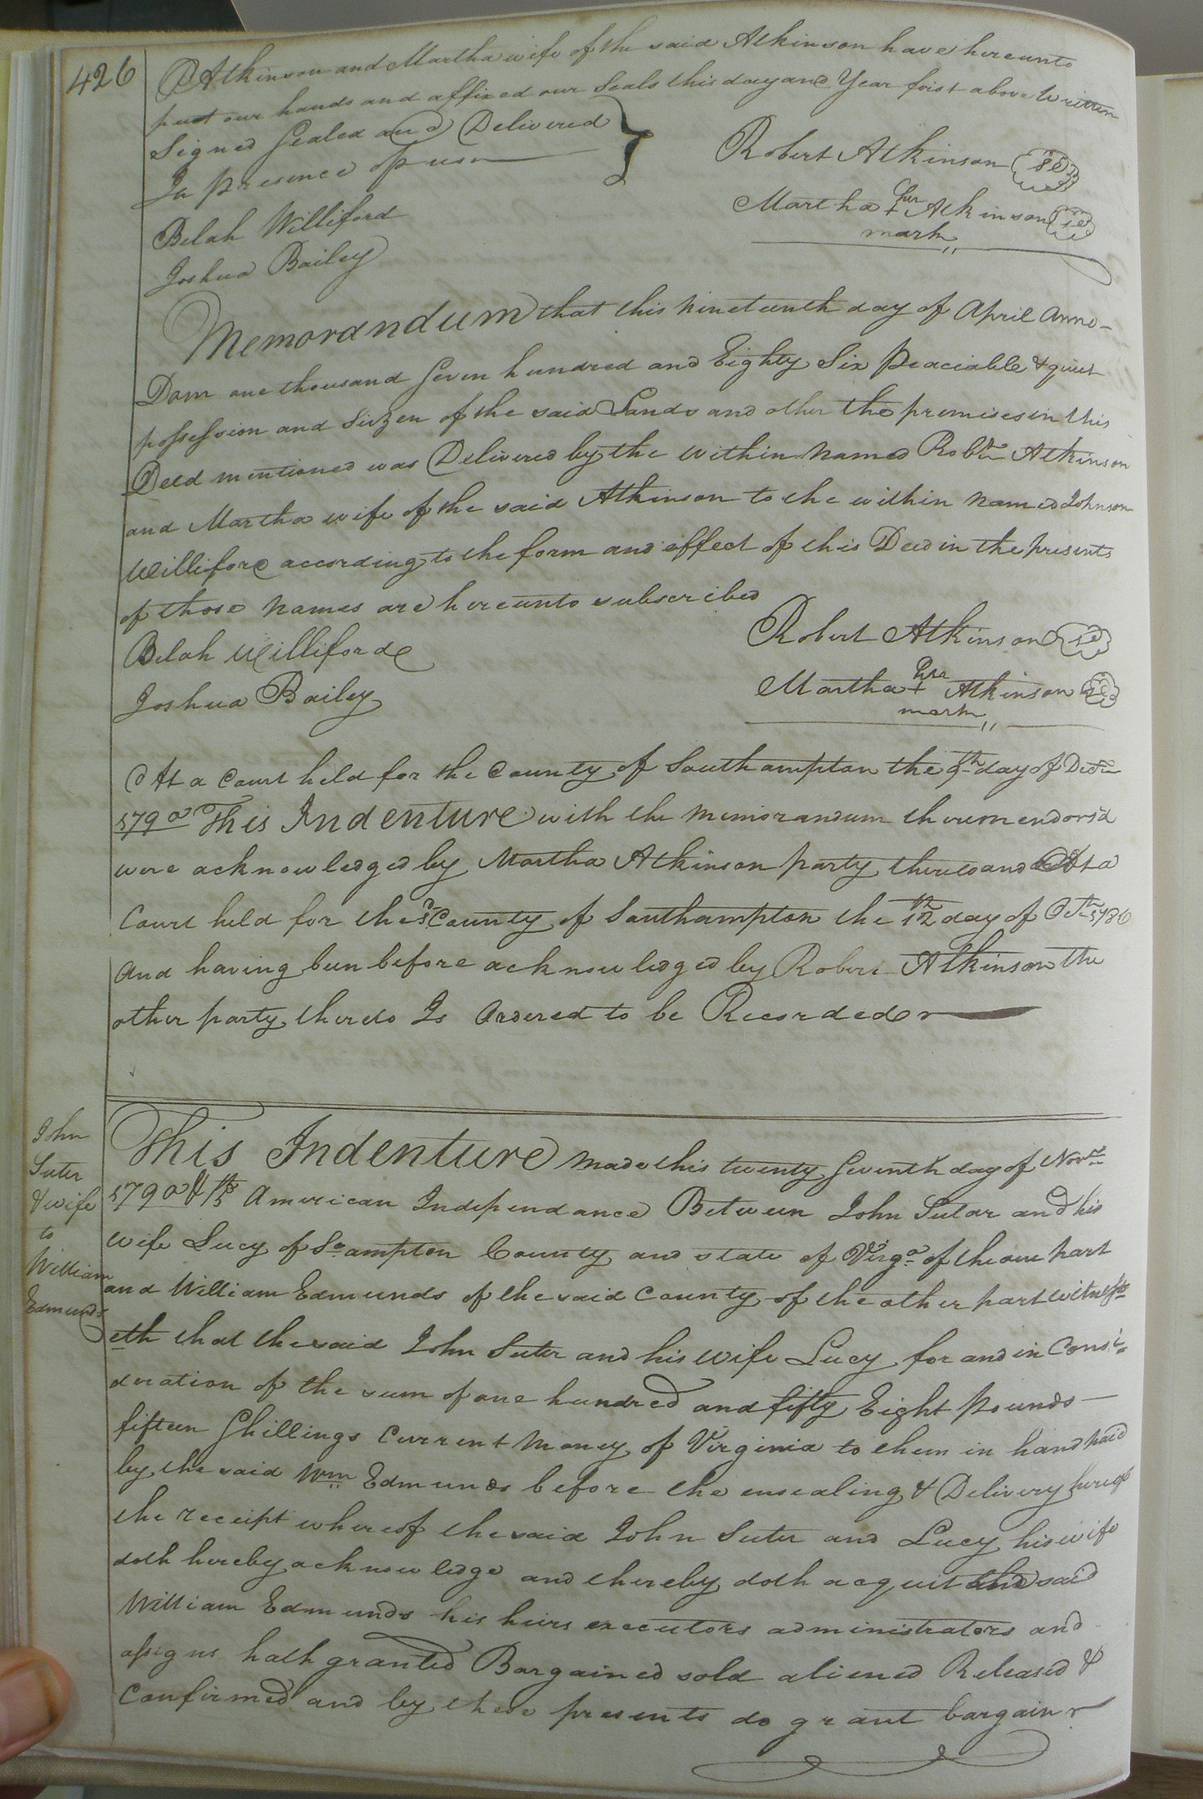 426
Atkinson and Martha wife of the said Atkinson have hereunto
put our hands and affixed our Seals this day and Year first above Written
Signed Sealed and Delivered
In presence of us
Robert Atkinson
Martha + Atkinson
her
mark
Belah Williford
Joshua Bailey
Memorandum that this Nineteenth day of April Anno
Dom one thousand Seven hundred and Eighty Six peaciable & quiet
possession and Siezen of the said Lands and other the premises in this
Deed mentioned was Delivered by the within Named Robt. Atkinson
and Martha wife of the said Atkinson to the within Named Johnson
Williford according to the form and effect of this Deed in the presents
of those Names are hereunto subscribed
Belah Williford
Joshua Bailey
Robert Atkinson
Martha + Atkinson
her
mark
At a Court held for the County of Southampton the 9th day of Decr.
1790 This Indenture with the Memorandum thereon endors'd
were acknowledged by Martha Atkinson party thereto and At a
Court held for the sd. County of Southampton the 12th day of Octr. 1786
And having been before acknowledged by Robert Atkinson the
other party thereto Is Ordered to be Recorded
John
Suter
& wife
to
William
Edmunds
This Indenture made this twenty Seventh day of Novr.
1790 & 15th American Independance Between John Sutar and his
Wife Lucy of So.ampton County and state of Virga. of the one part
and William Edmunds of the said County of the other part witness
eth that the said John Suter and his wife Lucy for and in Consi
deration of the sum of one hundred and fifty Eight Pounds
fifteen Shillings Current Money of Virginia to them in hand paid
by the said Wm. Edmunds before the ensealing & Delivery hereof
the receipt whereof the said John Suter and Lucy his wife
doth hereby acknowledge and thereby doth acquit the said
William Edmunds his heirs executors administrators and
assigns hath granted Bargained sold aliened Released &
Confirmed and by these presents do grant bargain